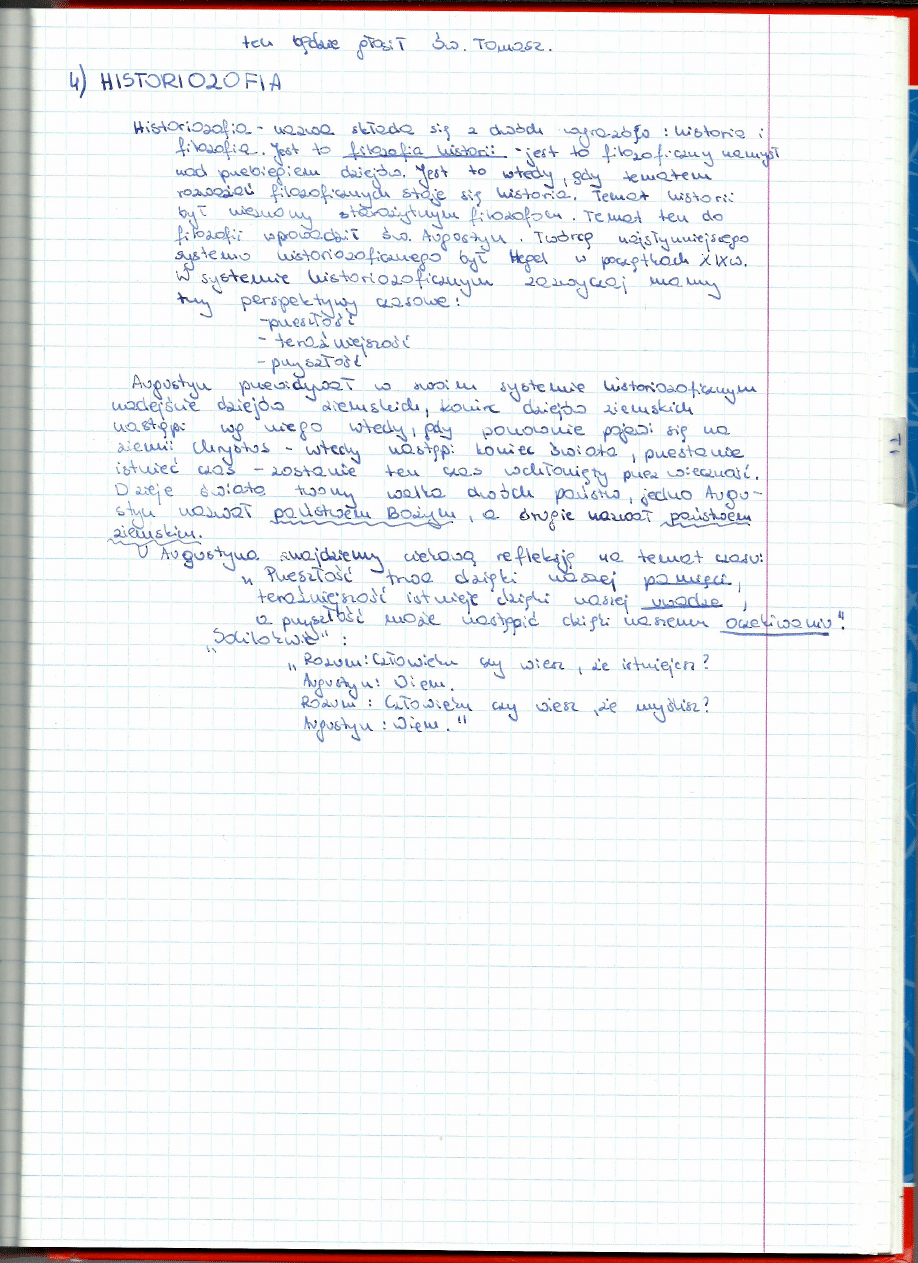 ten będzie głosił św. Tomasz.
4) HISTORIOZOFIA
Historiozofia - nazwa składa się z dwóch wyrazów : historia i
filozofia. Jest to filozofia historii - jest to filozoficzny namysł
nad przebiegiem dziejów. Jest to wtedy, gdy tematem
rozważań filozoficznych staje się historia. Temat historii
był nieznany starożytnym filozofom. Temat ten do
filozofii wprowadził św. Augustyn. Twórcą najsłynniejszego
systemu historiozoficznego był Hegel w początkach XIXw.
W systemie historiozoficznym zazwyczaj mamy
trzy perspektywy czasowe:
- przeszłość
- teraźniejszość
- przyszłość
Augustyn przewidywał w swoim systemie historiozoficznym
nadejście dziejów ziemskich, koniec dziejów ziemskich
nastąpi wg niego wtedy, gdy ponownie pojawi się na
ziemi Chrystus - wtedy nastąpi koniec świata, przestanie
istnieć czas - zostanie ten czas wchłonięty przez wieczność.
Dzieje świata tworzy walka dwóch państw, jedno Augu-
styn nazwał państwem Bożym, a drugie nazwał państwem
ziemskim.
U Augustyna znajdziemy ciekawą refleksję na temat czasu:
"Przeszłość trwa dzięki naszej pamięci,
teraźniejszość istnieje dzięki naszej uwadze,
a przyszłość może nastąpić dzięki naszemu oczekiwaniu".
"Solilokwie" :
"Rozum: Człowieku czy wiesz, że istniejesz?
Augustyn: Wiem.
Rozum : Człowieku czy wiesz, że myślisz?
Augustyn : Wiem."